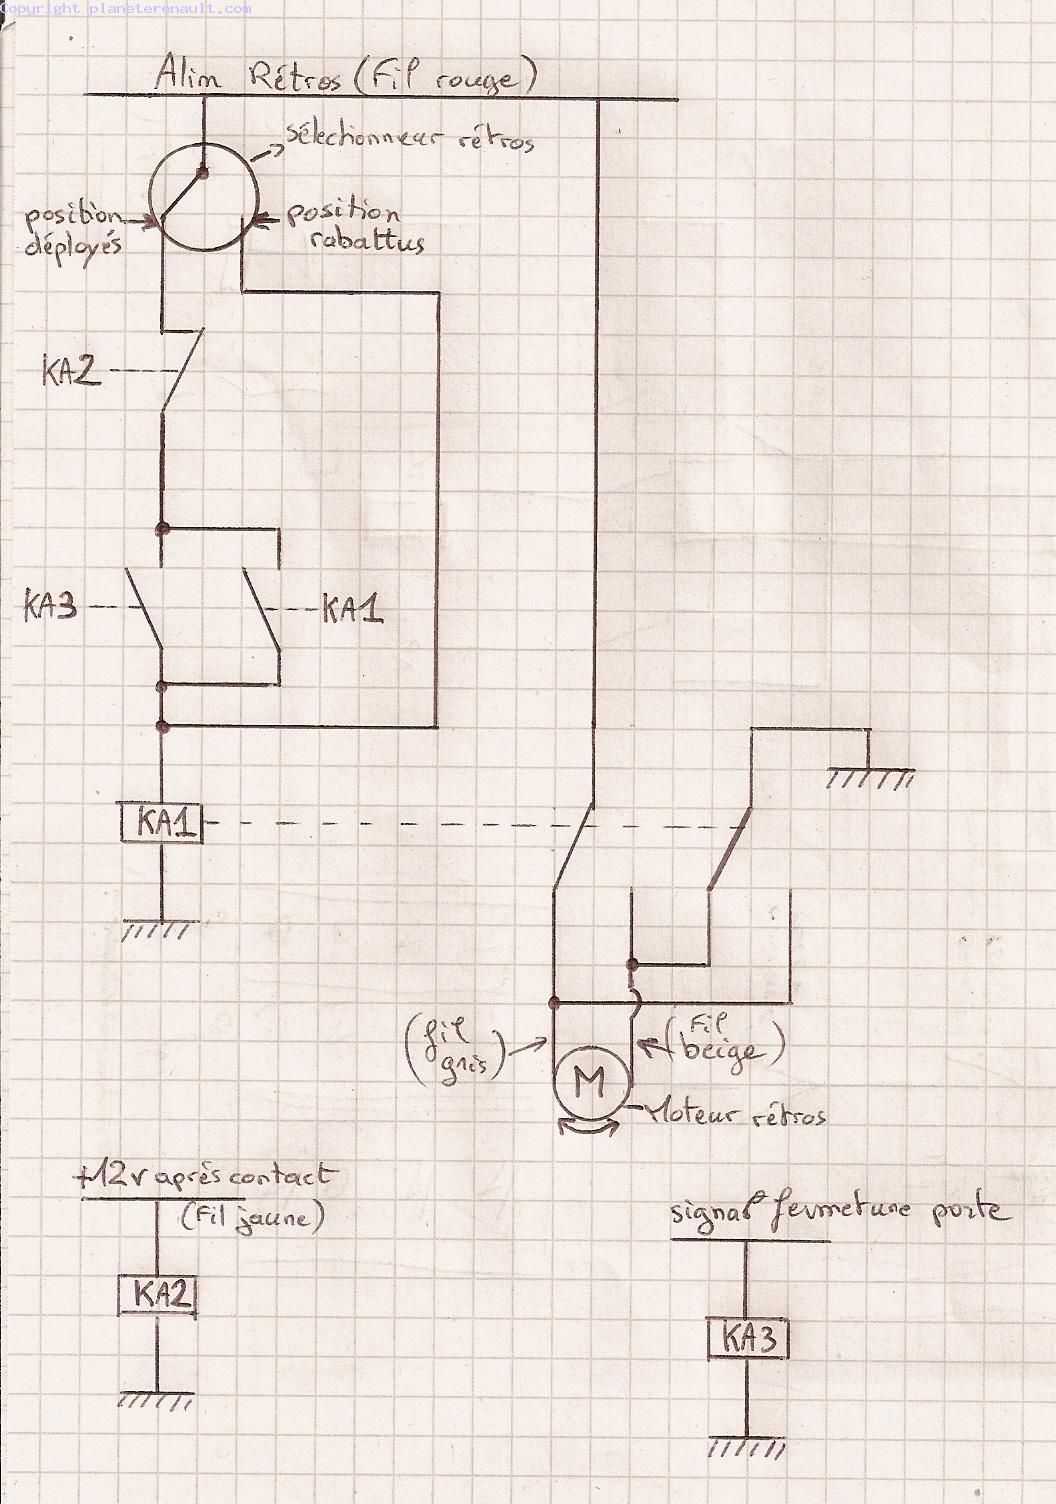 Copyright planeterenault.com
Alim Rétros (Fil rouge)
sélectionneur rétros
position
déployés
position
rabattus
KA2
KA3
KA1
KA1
(fil
gris)
(Fil
beige)
M
Moteur rétros
+12v après contact
(Fil jaune)
KA2
signal fermeture porte
KA3